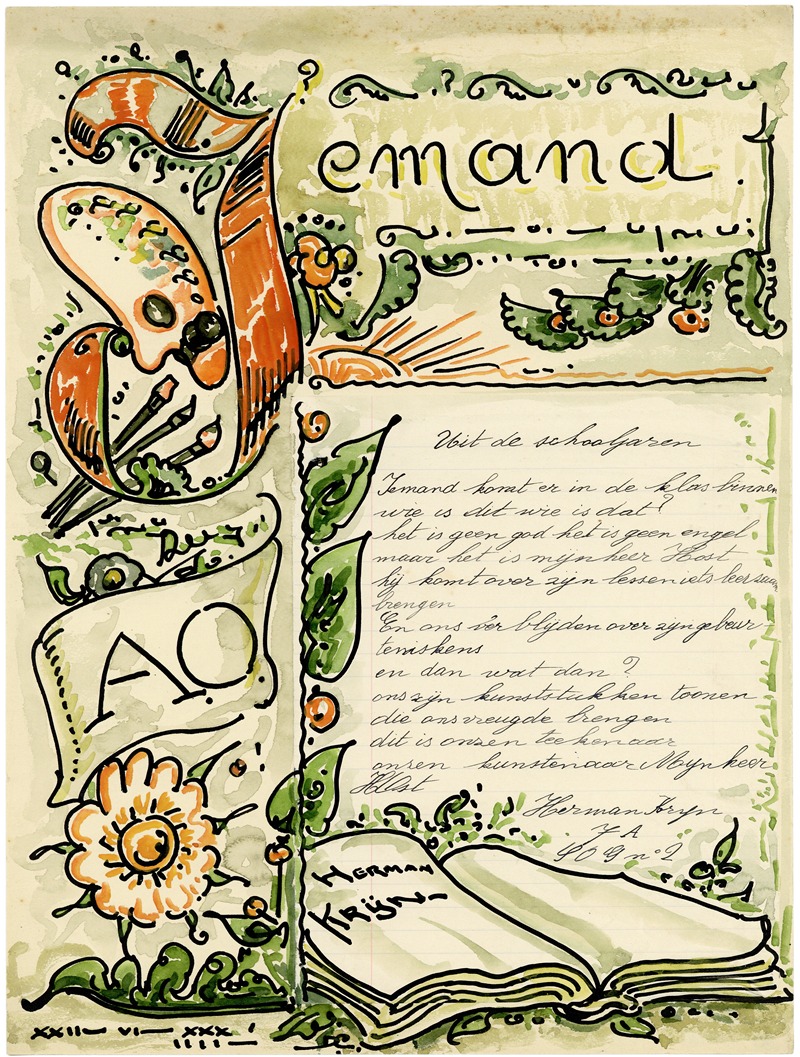 Iemand!
Uit de schooljaren
Iemand komt er in de klas binnen
wie is dit wie is dat?
het is geen god het is geen engel
maar het is mijnheer Host
hij komt over zijn lessen iets leerzaam
brengen
En ons verblijden over zijn gebeur-
teniskens
en dan wat dan?
ons zijn kunststukken toonen
die ons vreugde brengen
dit is onzen teekenaar
onzen kunstenaar Mijnheer
Host
Herman Kryn
7 A
n° 2
AO
HERMAN
KRIJN-
XXII- VI- XXX
IIII-